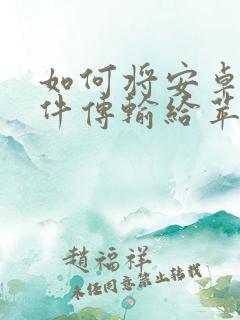 如何将安卓
件傳輸給苹
趙福祥
未经同意禁止转载